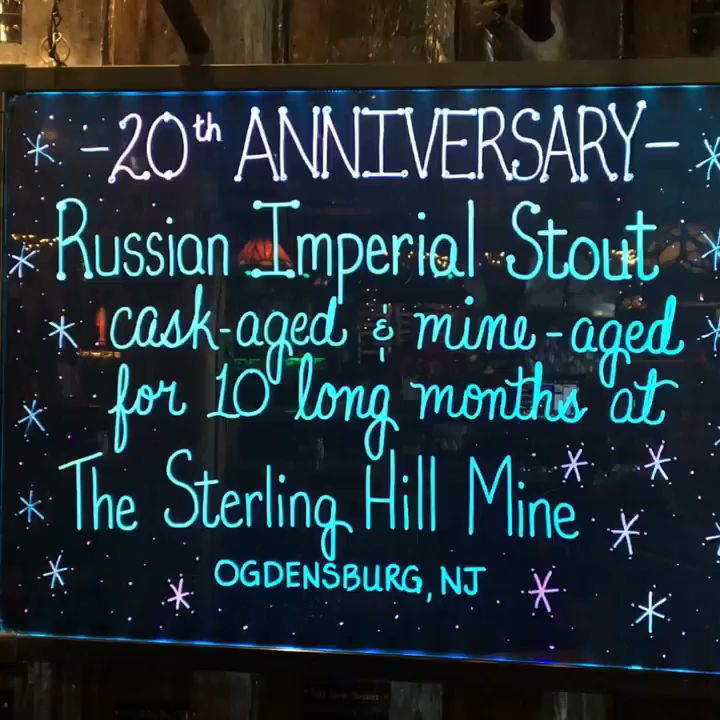 -20th ANNIVERSARY-
Russian Imperial Stout
cask-aged & mine-aged
for 10 long months at
The Sterling Hill Mine
OGDENSBURG, NJ